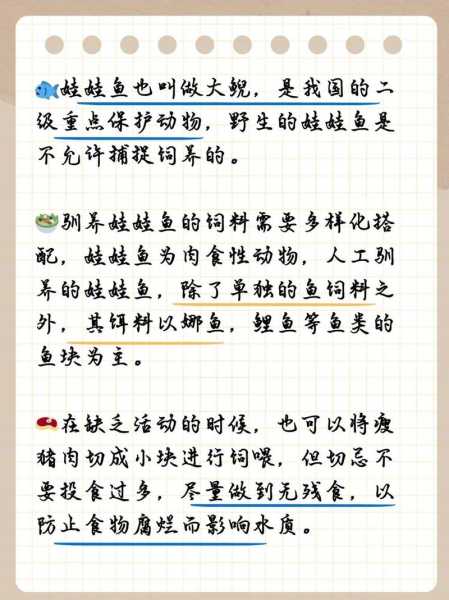 娃娃鱼也叫做大鲵，是我国的二
级重点保护动物，野生的娃娃鱼是
不允许捕捉饲养的。
驯养娃娃鱼的饲料需要多样化搭
配，娃娃鱼为肉食性动物，人工驯
养的娃娃鱼，除了单独的鱼饲料之
外，其饵料以娜鱼，鲤鱼等鱼类的
鱼块为主。
在缺乏活动的时候，也可以将瘦
猪肉切成小块进行饲喂，但切忌不
要投食过多，尽量做到无残食，以
防止食物腐烂而影响水质。